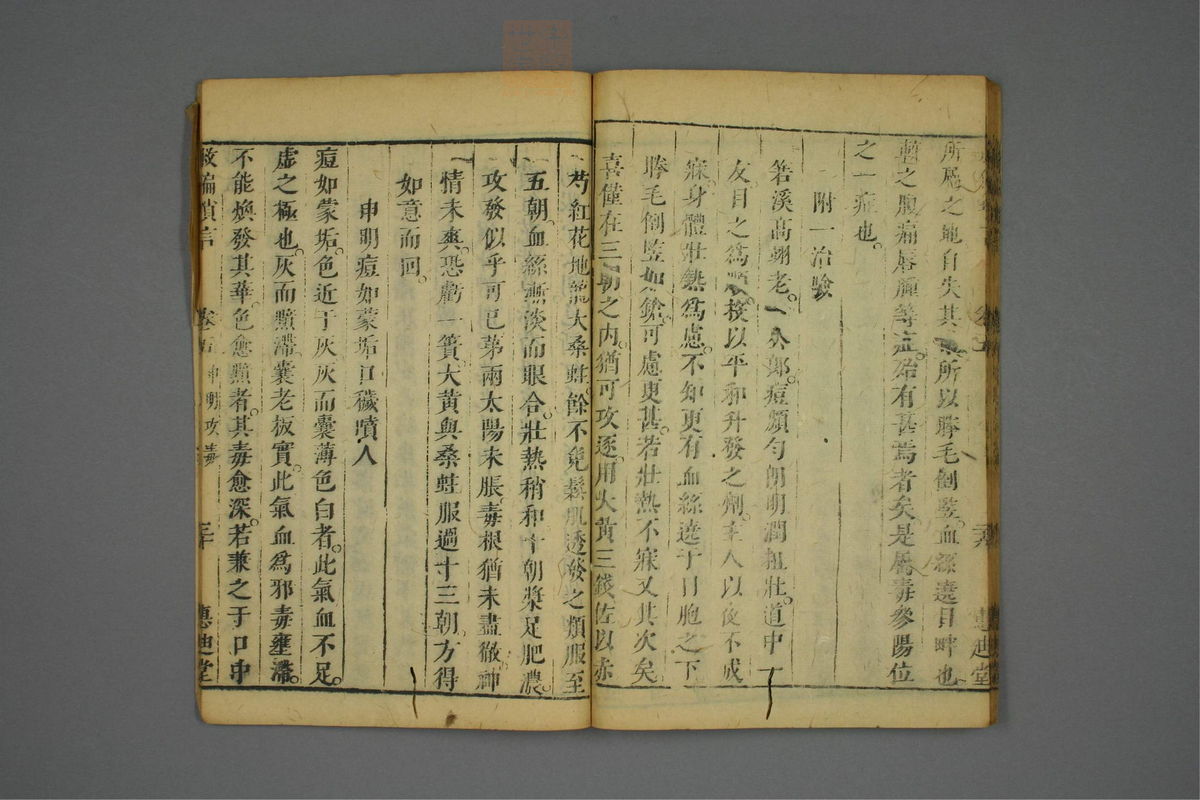 所爲之地自失其所以睁毛倒竪血絲遶目畔也
塹之腹痛唇腫等症殆有甚焉者矣是厲毒參陽位
之一症也
附一治驗
箬溪高翊老一大郎痘頗勻朗明潤粗壯道中一
友目之爲順按以平和升發之劑主人以夜不成
寐身體壯熱爲慮不知更有血絲遶于目胞之下
睁毛倒竪如鎗可慮更甚若壯熱不寐又其次矣
喜僅在三朝之内猶可攻逐用大黃三錢佐以赤
芍紅花地龍大桑蛀餘不免鬆肌透發之類服至
五朝血絲漸淡而眼合壯熱稍和十朝漿足肥濃
攻發似乎可已苐兩太陽未脹毒根猶未盡徹神
情未爽恐虧一簣大黃與桑蛀服過十三朝方得
如意而回
申明痘如蒙垢口穢噴人
痘如蒙垢色近于灰灰而囊薄色白者此氣血不足
虛之極也灰而黰滯囊老板實此氣血爲邪毒壅滯
不能煥發其華色愈黰者其毒愈深若兼之于口中
救偏瑣言 卷五 申明攻毒 二十 惠迪堂